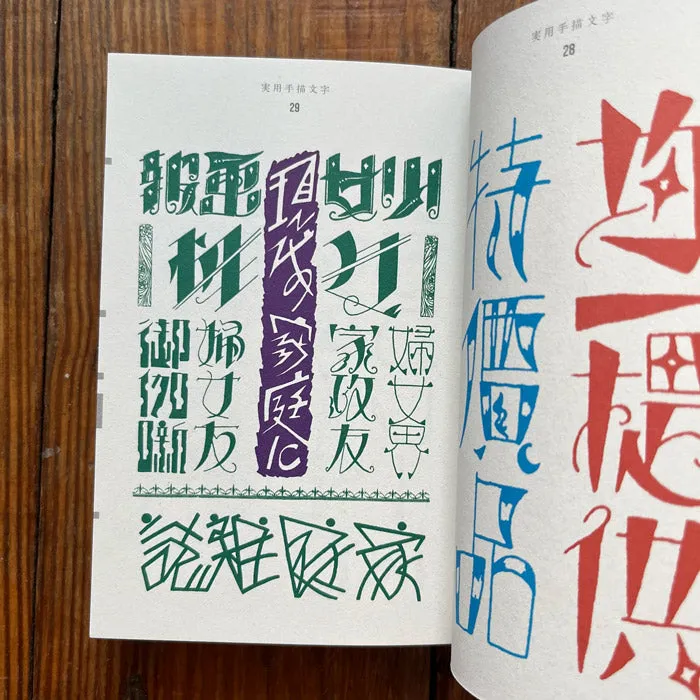 実用手描文字
28
均一提供
特價品
実用手描文字
29
少女畫報
現代の家庭に
婦女界
家政友
婦女友
御伽噺
家庭雜誌